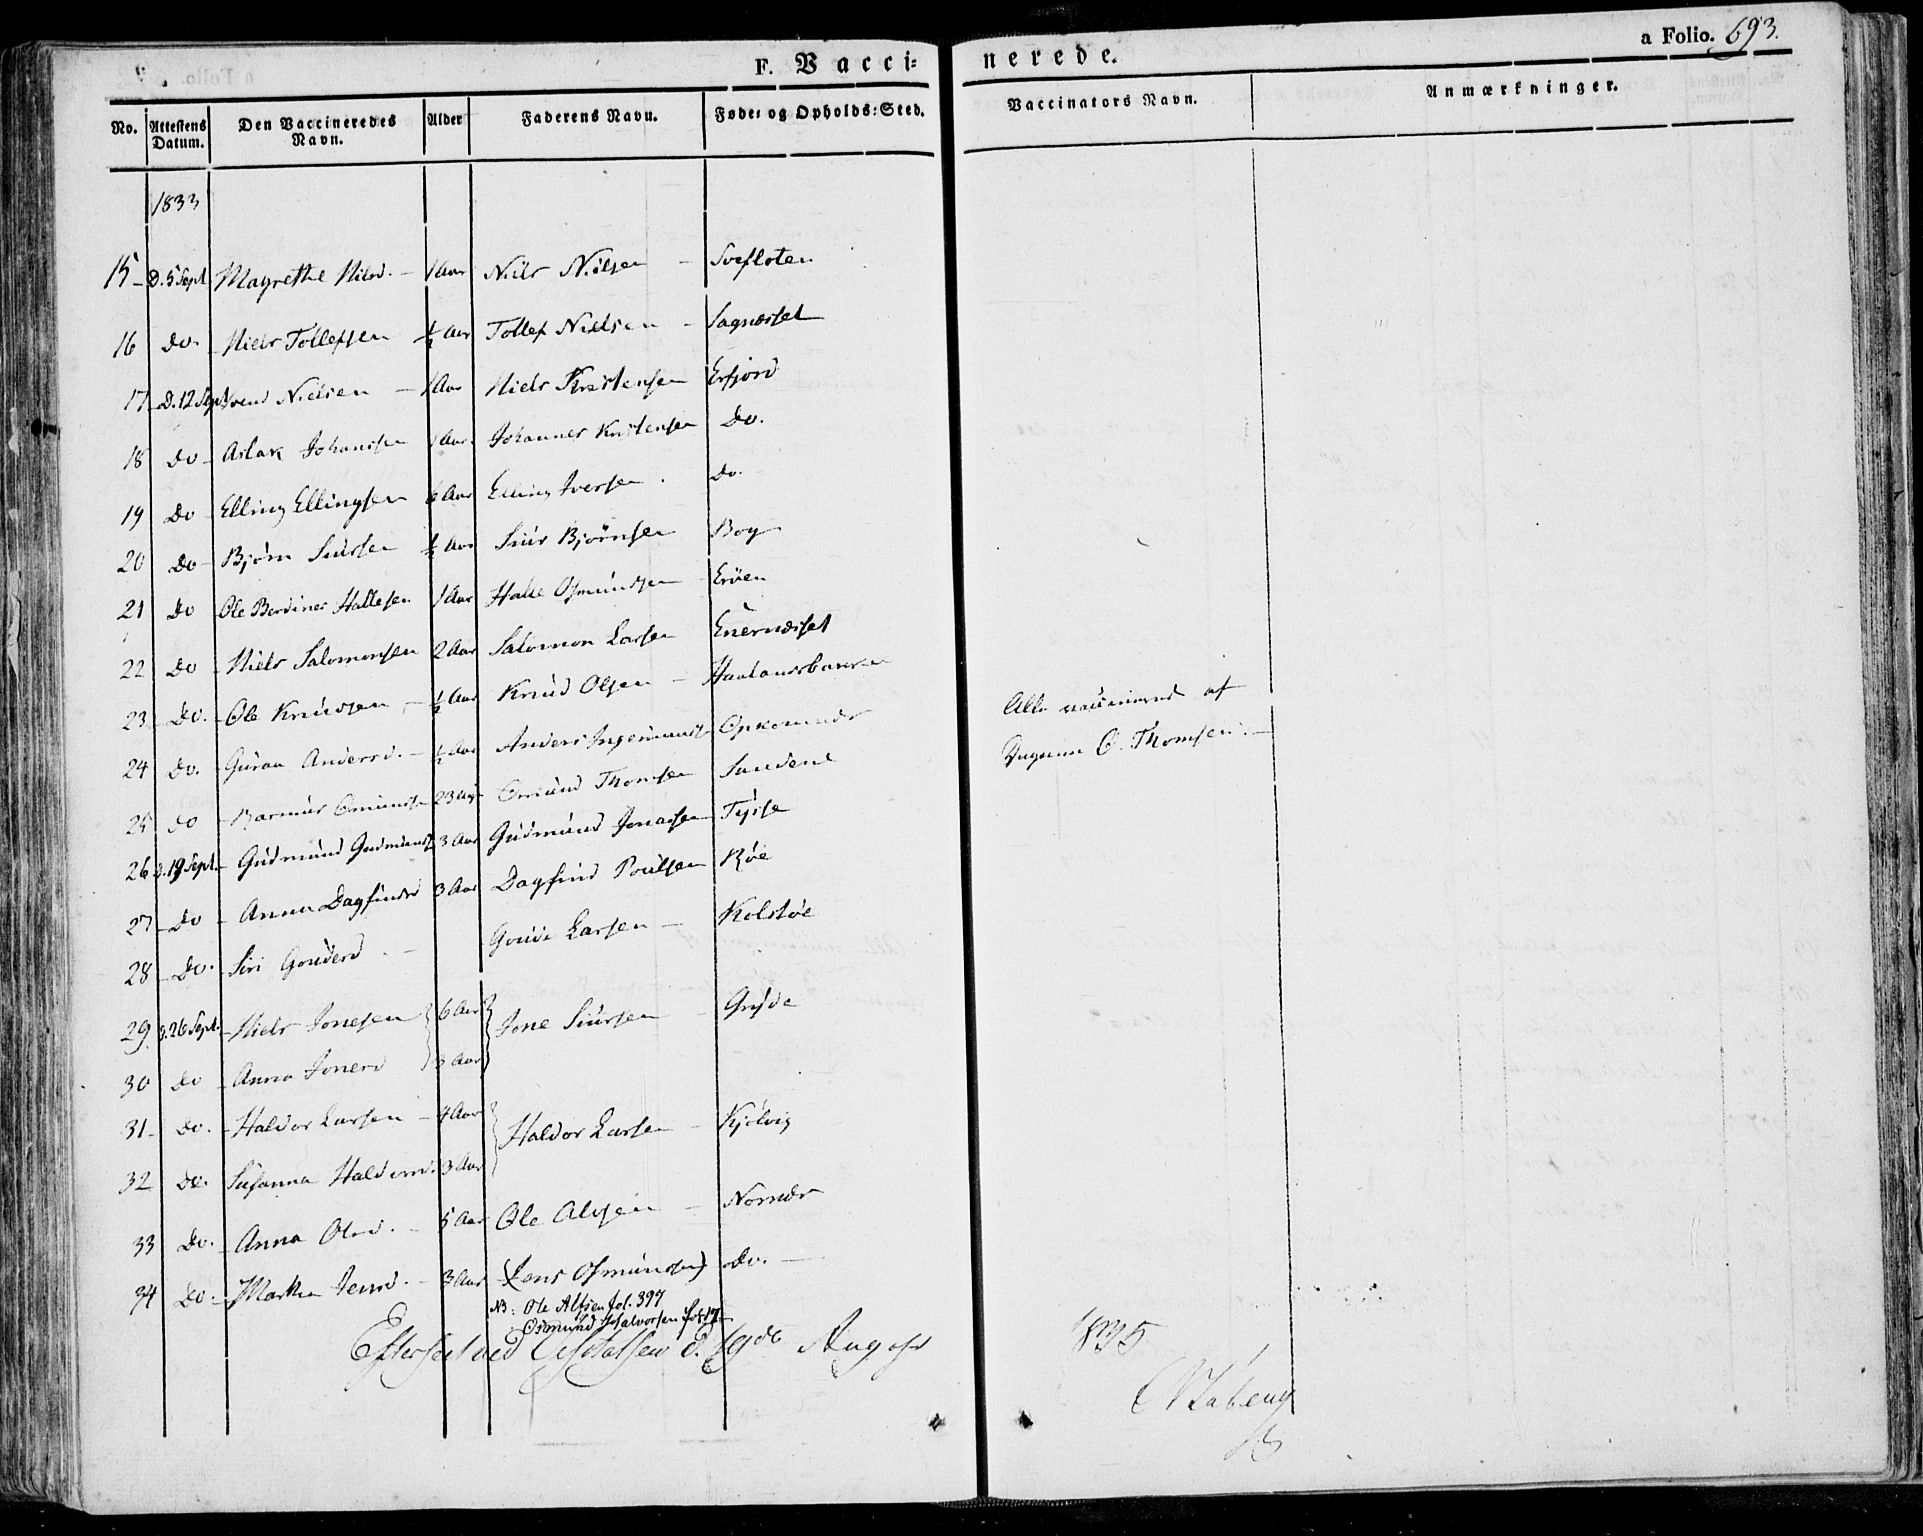 F. Vacci= nerede. a Folio. 693.
No. Attestens Datum. Den Vaccineredes Navn. Alder Faderens Navn. Føde= og Opholds=Sted. Vaccinators Navn. Anmærkninger.
1833
15 D. 5 Sept Magrethe Nilsd. 1 Aar Niels Nielsen
16 Do. Niels Tollefsen ½ Aar Tollef Nielsen Sagnæsset
17 D. 12 Sept Svend Nielsen 1 Aar Niels Kristensen Erfjord
18 Do Aslak Johansen 1 Aar Johannes Kristensen Do.
19 Do Elling Ellingsen 6 Aar Elling Iversen Do.
20 Do Bjørn Siursen ½ Aar Siur Bjørnsen Bog
21 Do Ole Berdines Hallesen 1 Aar Halle Osmundsen Erøen
22 Do Niels Salomonsen 2 Aar Salomon Larsen
23 Do. Ole Knudsen ½ Aar Knud Olsen
24 Do. Guroa Andersd. ½ Aar Anders
25 Do Rasmus 23 Aar Osmund Thomsen Sandene
26 D. 19 Sept. Gudmund Gudmunds 3 Aar Gudmund Jonassen Tysse
27 Do Anna Dagfindsd 3 Aar Dagfind Poulsen Røe
28 Do. Siri Goudesd Goude Larsen Kolstøe
29 D. 26 Sept. Niels Jonesen 6 Aar Jone Siursen Gryde
30 Do Anna Jonesd 3 Aar
31 Do. Haldor Larsen 4 Aar Haldor Larsen Kjølvig
32 Do. Susanna Haldorsd. 3 Aar
33 Do. Anna Olsd. 5 Aar Ole Alfsen
34 Do. Martha Jensd. 3 Aar (Osmundsen) Do.
NB: Ole Alfsen fol. 397
Osmund Halvorsen
Alle vaccinered af
C. Thomsen.
Efterseet ved d. 19de August 1835